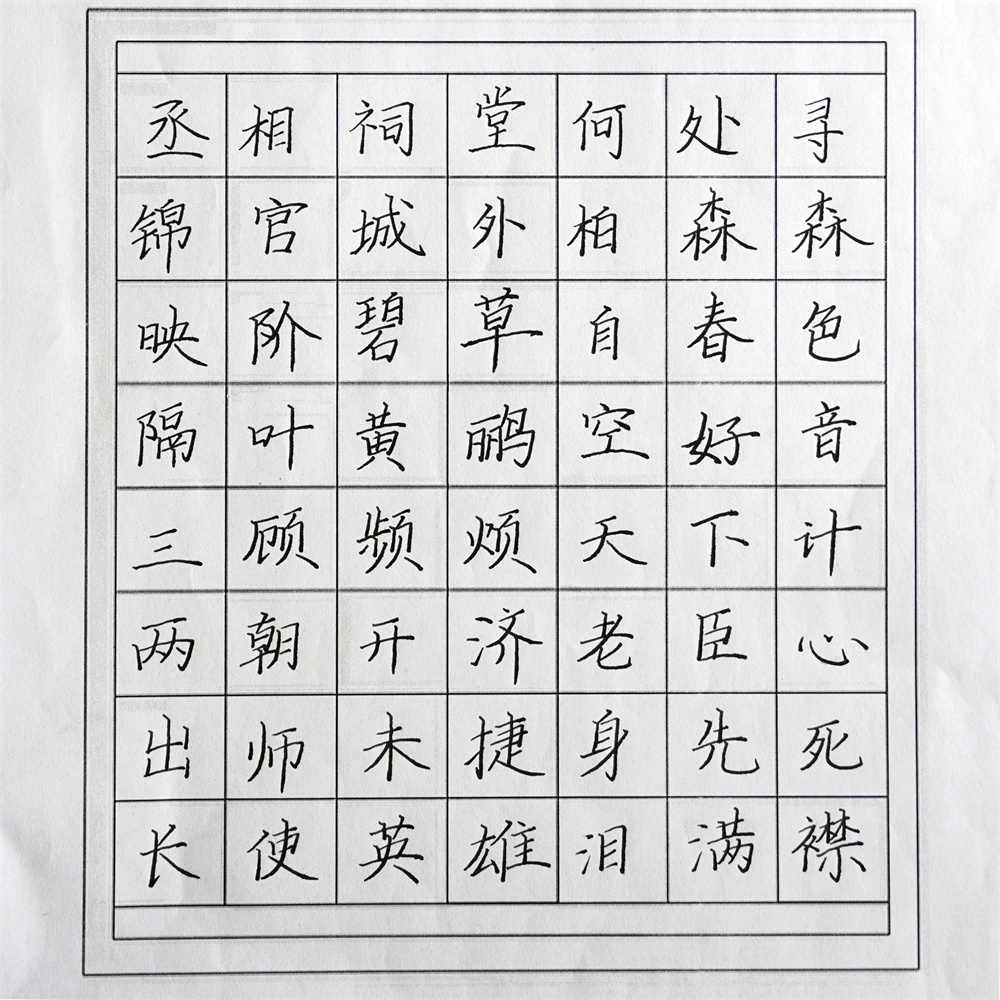 丞相祠堂何处寻
锦官城外柏森森
映阶碧草自春色
隔叶黄鹂空好音
三顾频烦天下计
两朝开济老臣心
出师未捷身先死
长使英雄泪满襟